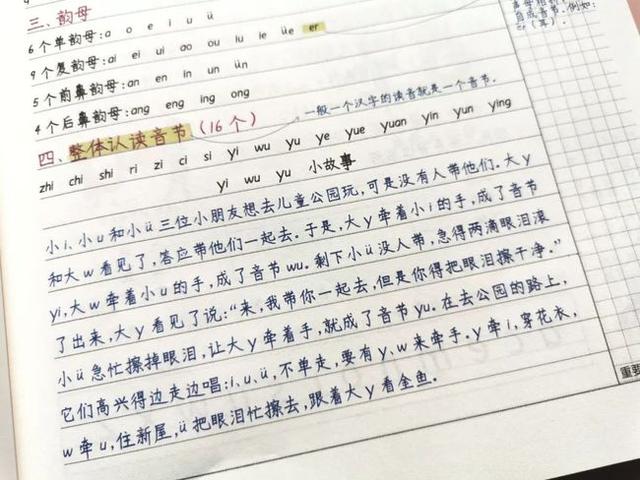 三、韵母
6个单韵母:a o e i u ü
9个复韵母:ai ei ui ao ou iu ie üe er
5个前鼻韵母:an en in un ün
4个后鼻韵母:ang eng ing ong
一般一个汉字的读音就是一个音节.
四、整体认读音节(16个)
zhi chi shi ri zi ci si yi wu yu ye yue yuan yin yun ying
yi wu yu 小故事
小i、小u和小ü三位小朋友想去儿童公园玩,可是没有人带他们.大y
和大w看见了,答应带他们一起去.于是,大y牵着小i的手,成了音节
yi,大w牵着小u的手,成了音节wu.剩下小ü没人带,急得两滴眼泪滚
了出来,大y看见了说:“来,我带你一起去,但是你得把眼泪擦干净.”
小ü急忙擦掉眼泪,让大y牵着手,就成了音节yu.在去公园的路上,
它们高兴得边走边唱:i、u、ü,不单走,要有y、w来牵手.y牵i,穿花衣,
w牵u,住新屋,ü把眼泪忙擦去,跟着大y看金鱼.
自成音节,例如:
er(耳).
重要